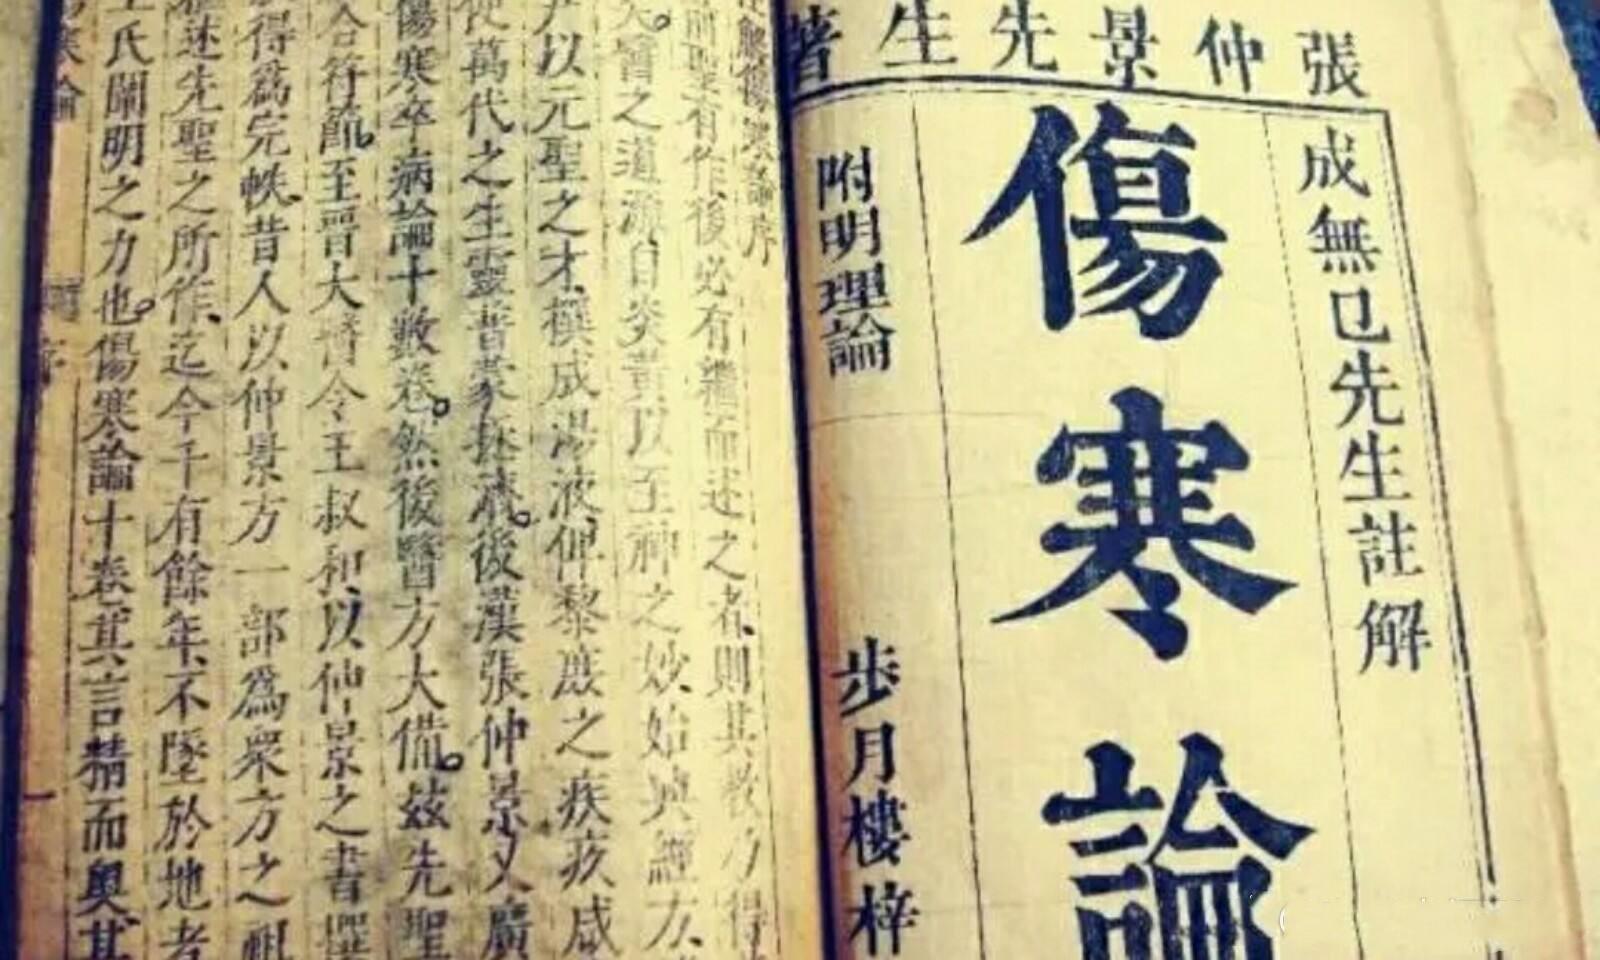 張仲景先生著
成無已先生註解
傷寒論
附明理論
步月樓梓
傷寒論序
前聖有作後必有繼而述之者則其教乃得
醫之道源自炎黃以至神之妙始興經方
以元聖之才撰成湯液俾黎庶之疾疢咸
使萬代之生靈普蒙拯濟後漢張仲景又廣
傷寒卒病論十數卷然後醫方大備茲先聖
合符節至晉太醫令王叔和以仲景之書撰
得爲完帙昔人以仲景方一部爲衆方之祖
述先聖之所作迄今千有餘年不墜於地者
王氏闡明之力也傷寒論十卷其言精而奧其